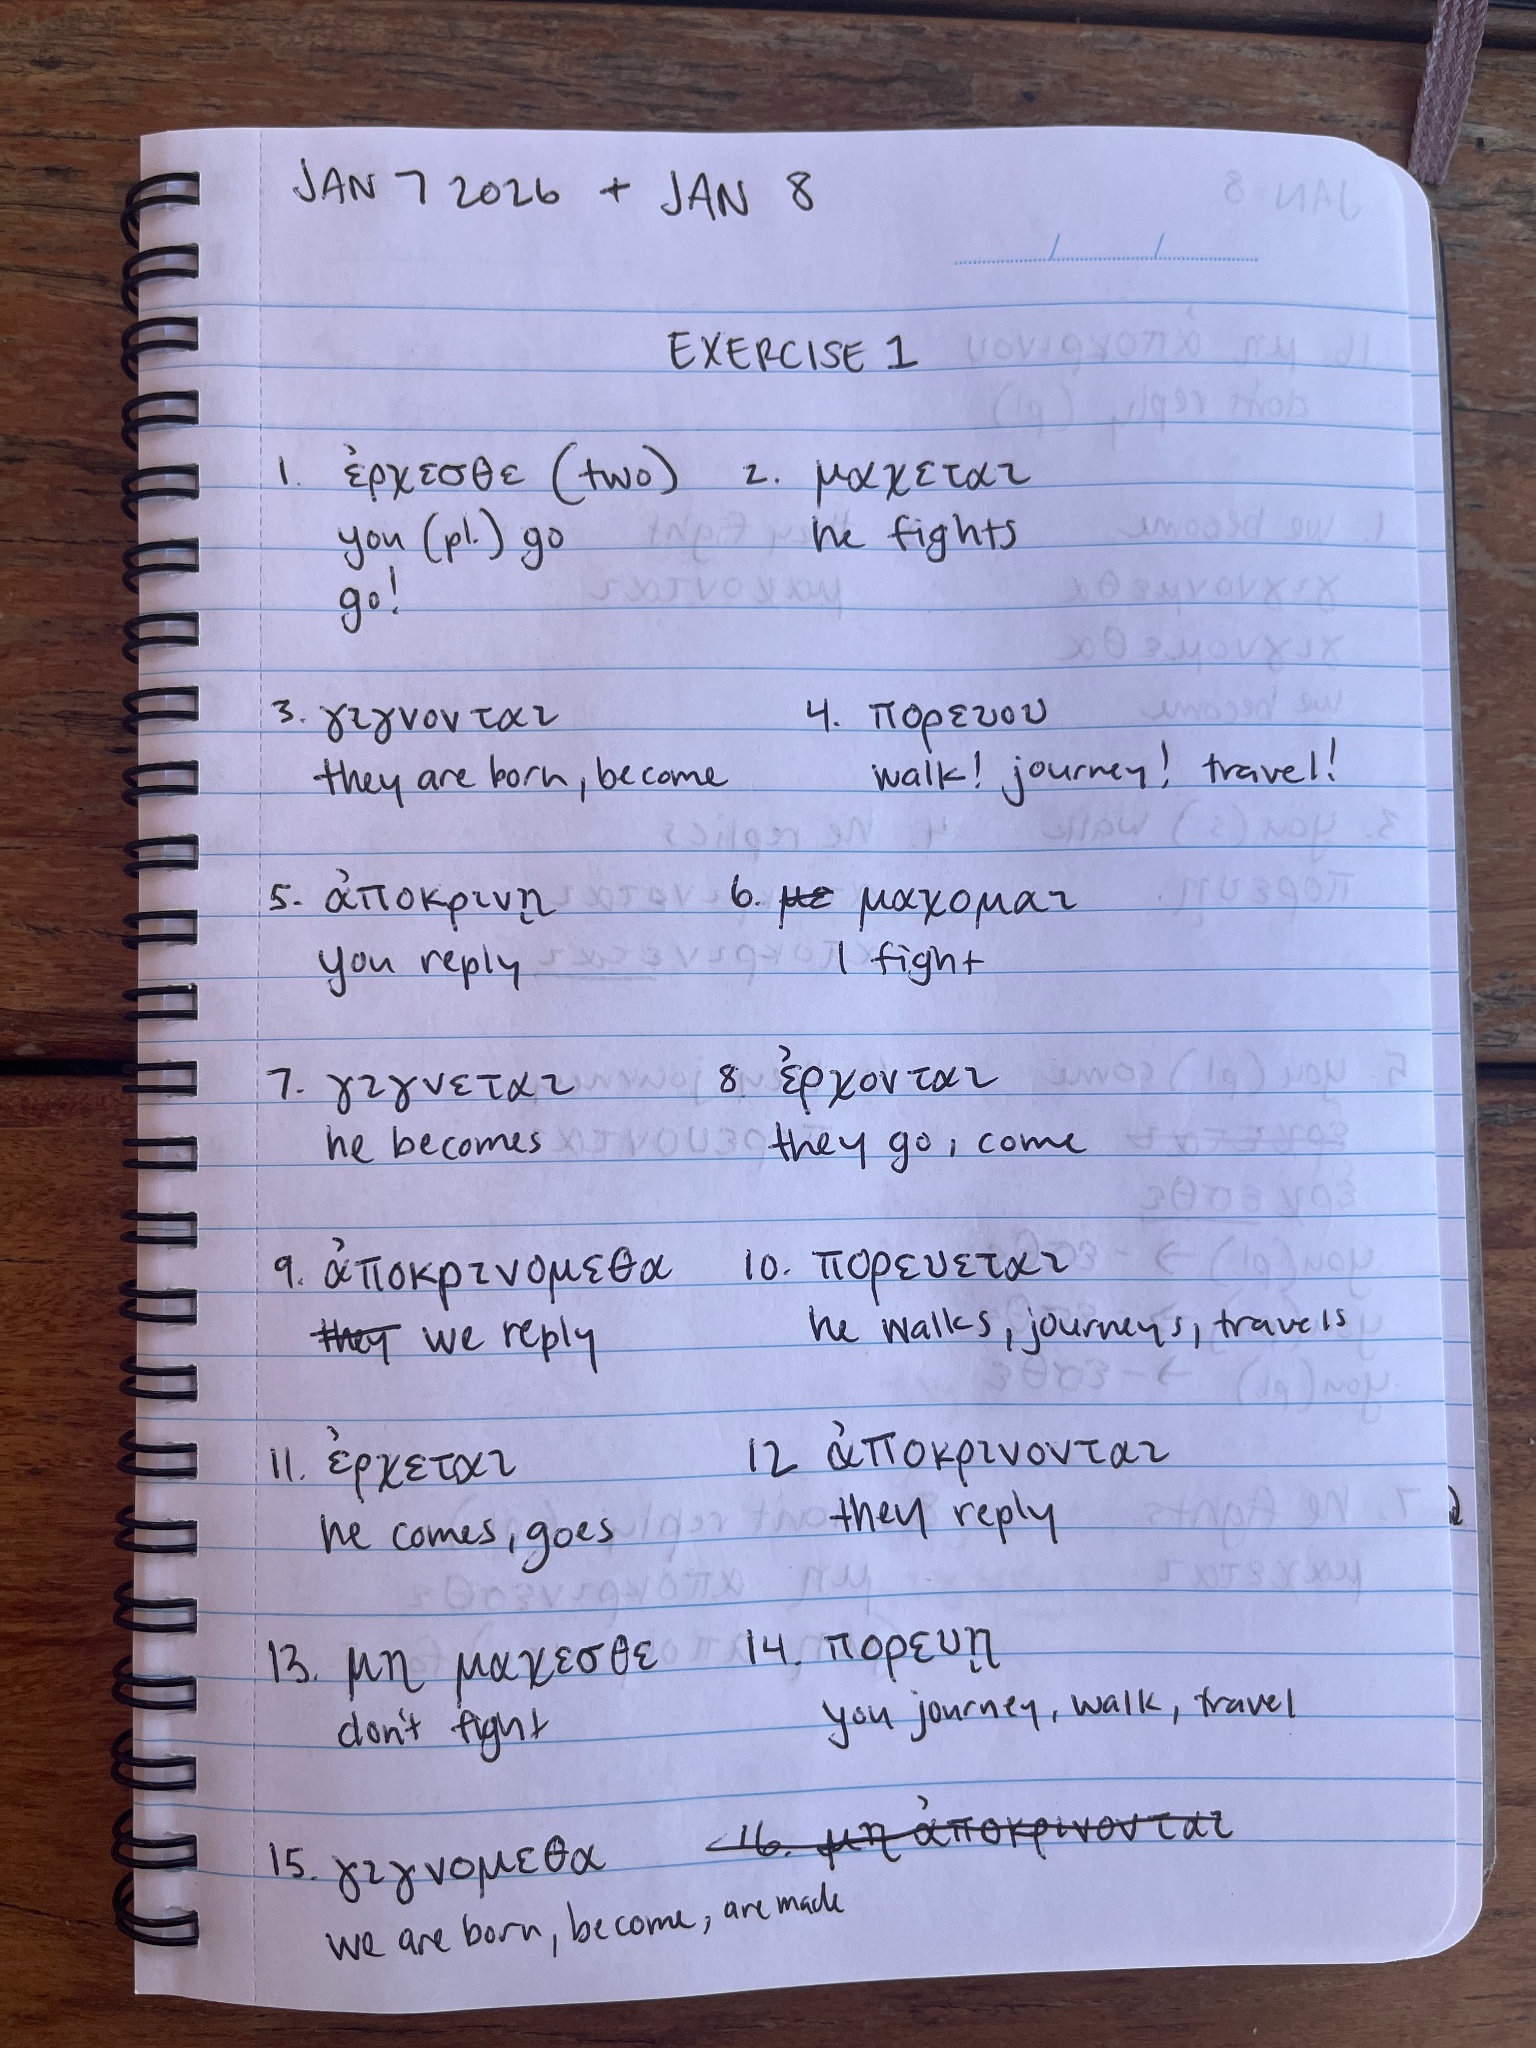 JAN 7 2026 + JAN 8
EXERCISE 1
1. ἐρχεσθε (two) 2. μαχεται
you (pl.) go he fights
go!
3. γιγνονται 4. πορευου
they are born, become walk! journey! travel!
5. ἀποκρινῃ 6. με μαχομαι
you reply I fight
7. γιγνεται 8. ἐρχονται
he becomes they go, come
9. ἀποκρινομεθα 10. πορευεται
they we reply he walks, journeys, travels
11. ἐρχεται 12 ἀποκρινονται
he comes, goes they reply
13. μη μαχεσθε 14. πορευῃ
don't fight you journey, walk, travel
15. γιγνομεθα 16. μη ἀποκρινονται
we are born, become, are made